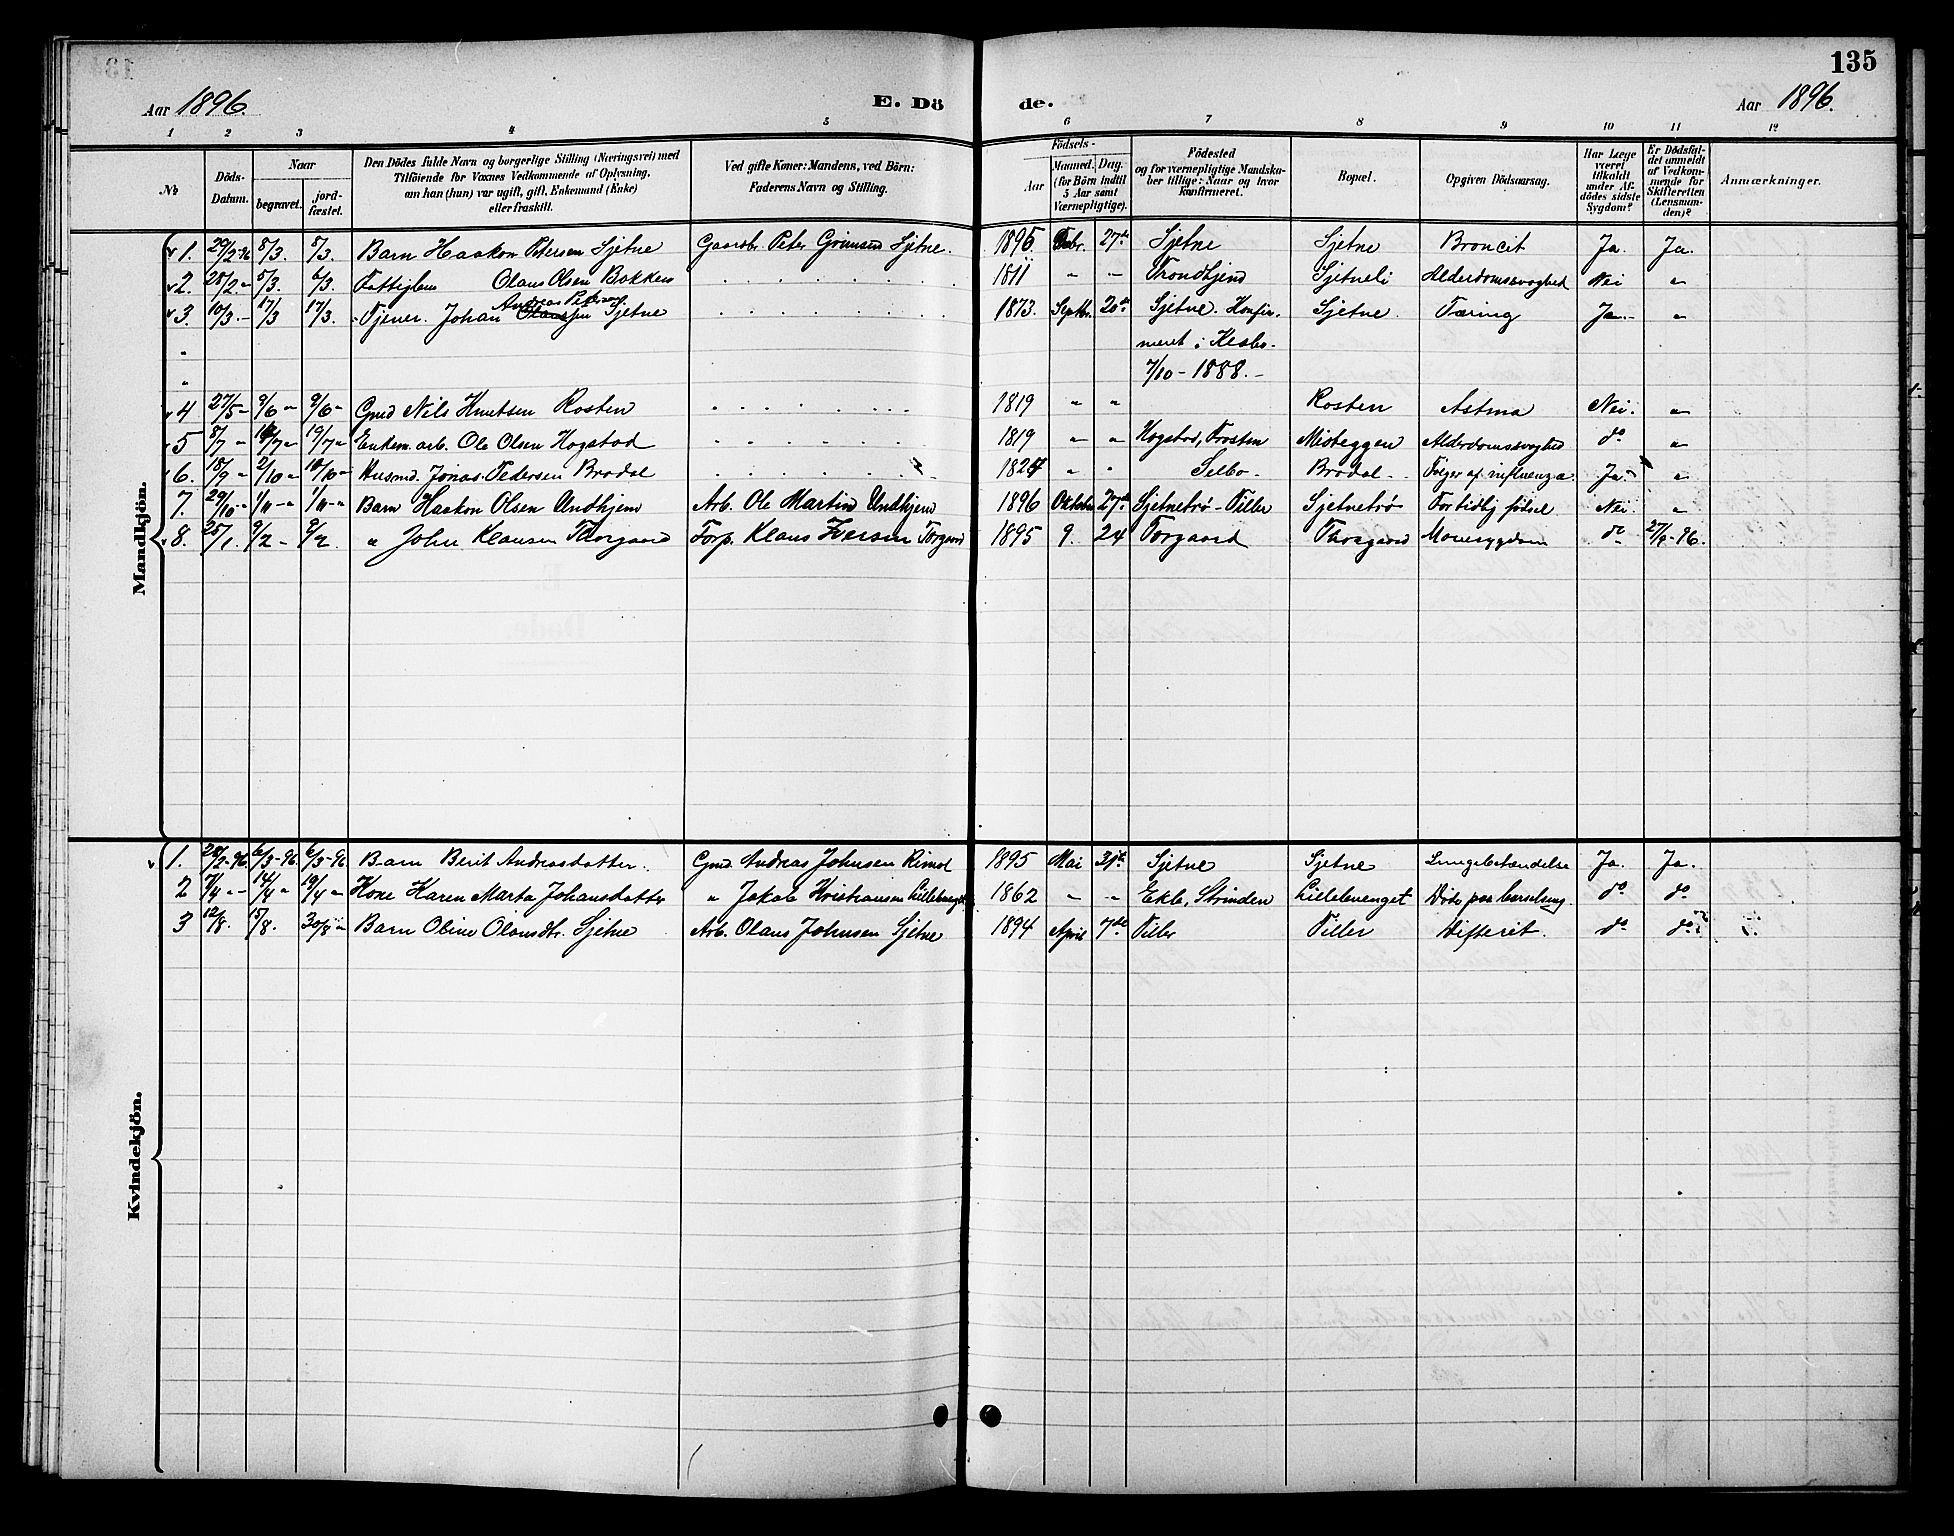 135
Aar 1896.
E. Dö de.
Aar 1896.
1 2 3 4 5 6 7 8 9 10 11 12
No
Döds-Datum.
Naar
begravet.
jord-fæstet.
Den Dödes fulde Navn og borgerlige Stilling (Næringsvei) med
Tilföiende for Voxnes Vedkommende af Oplysning,
om han (hun) var ugift, gift, Enkemand (Enke)
eller fraskilt.
Ved gifte Koner: Mandens, ved Börn:
Faderens Navn og Stilling.
Födsels-
Aar
Maaned. Dag.
(for Börn indtil
5 Aar samt
Værnepligtige).
Födested
og for værnepligtige Mandska-
ber tillige: Naar og hvor
konfirmeret.
Bopæl.
Opgiven Dödsaarsag.
Har Læge
været
tilkaldt
under Af-
dödes sidste
Sygdom?
Er Dödsfal-
det anmeldt
af Vedkom-
mende for
Skifteretten
(Lensman-
den)?
Anmærkninger.
Mandkjön.
1. 29/2-96 8/3. 8/3. Barn Haakon Petersen Sjetne Gaardbr. Peter Grimsen Sjetne. 1895 Febr. 27de Sjetne Sjetne Broncit Ja. Ja.
2. 28/2 - 5/3. 6/3. Fattiglem Olaus Olsen Bakken 1811 " - Trondhjem Sjetneli Alderdomssvaghed Nei "
Andreas Petersen
3. 10/3. - 17/3 17/3. Tjener. Johan Sjetne 1873. Septbr. 20de Sjetne. Konfir- Sjetne. Tæring Ja. "
meret i Klæbo.
7/10 - 1888. -
4 27/5 - 9/6 " 9/6 " Gmd Nils Knutsen Rosten 1819 " " Rosten Astma Nei. "
5 8/7 " 19/7 " Enkem. arb. Ole Olsen Hogstad 1819 - " Hogstad, Frosten Misteggen Alderdomssvaghed do "
6. 18/9 " 2/10 " 10/10 " Husmd. Jonas Pedersen Brodal 1824 " " Selbo - Brodal - Følger af influenza Ja "
7. 29/10 - " 1/11 - " 1/11 - " Barn Haakon Olsen Undhjem Arb. Ole Martin Undhjem 1896 Oktober 27de Sjetnetrø - Tiller Sjetnetrø Fortidlig fødsel Nei "
8. 25/1. 9/2 - 9/2. " John Klausen Thorgaard Forp. Klaus Iversen Torgaard 1895 9. 24 Torgaard Thorgaard Mavesygdom do 27/9-96.
Kvindekjön.
1. 28/2-96 6/3-96. 6/3-96 Barn Berit Andreasdatter. Gmd. Andreas Johnsen Rimol 1895 Mai 31te Sjetne Sjetne Lungebetændelse Ja. Ja.
2 7/4 " - 14/4 " 19/4 " Kone Karen Marta Johansdatter " Jakob Kristiansen Lilleenget 1862 " " Ekle, Strinden Lilleenget Døde paa barselseng. do do
3 12/8. 15/8. 30/8 " Barn Oline Olausdtr. Sjetne Arb. Olaus Johnsen Sjetne 1894 April 7de Tiller Tiller Difterit. do do